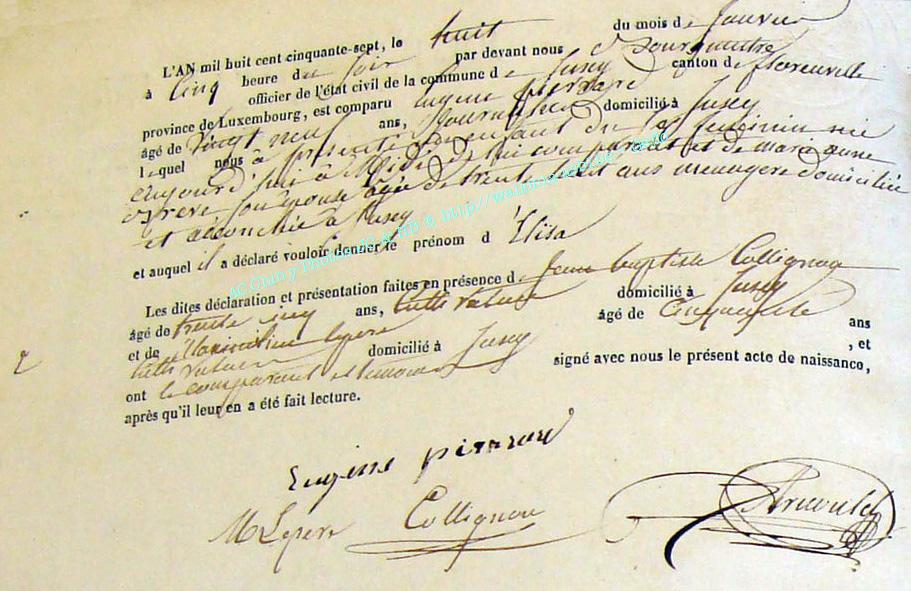 L'AN mil huit cent cinquante-sept, le huit du mois d e Janvier
à Cinq heure du soir par devant nous
officier de l'état civil de la commune d e Jusey canton de florenville
province de Luxembourg, est comparu Eugene pierrard
âgé de vingt neuf ans, Journalier domicilié à Jusey
lequel nous a présenté un enfant du sexe feminin née
aujourd'hui à Midi de lui comparant et de marianne
son épouse agée de trente huit ans menagere domiciliée
et accouchée à Jusey
et auquel il a déclaré vouloir donner le prénom d' Elisa
Les dites déclaration et présentation faites en présence d e Jean baptiste Collignon
âgé de trente cinq ans, cultivateur domicilié à Jusey
et de Maximilien lepere âgé de Cinquante ans
cultivateur domicilié à Jusey , et
ont le comparant et temoins signé avec nous le présent acte de naissance,
après qu'il leur en a été fait lecture.
Eugene pierrard
M Lepere Collignon